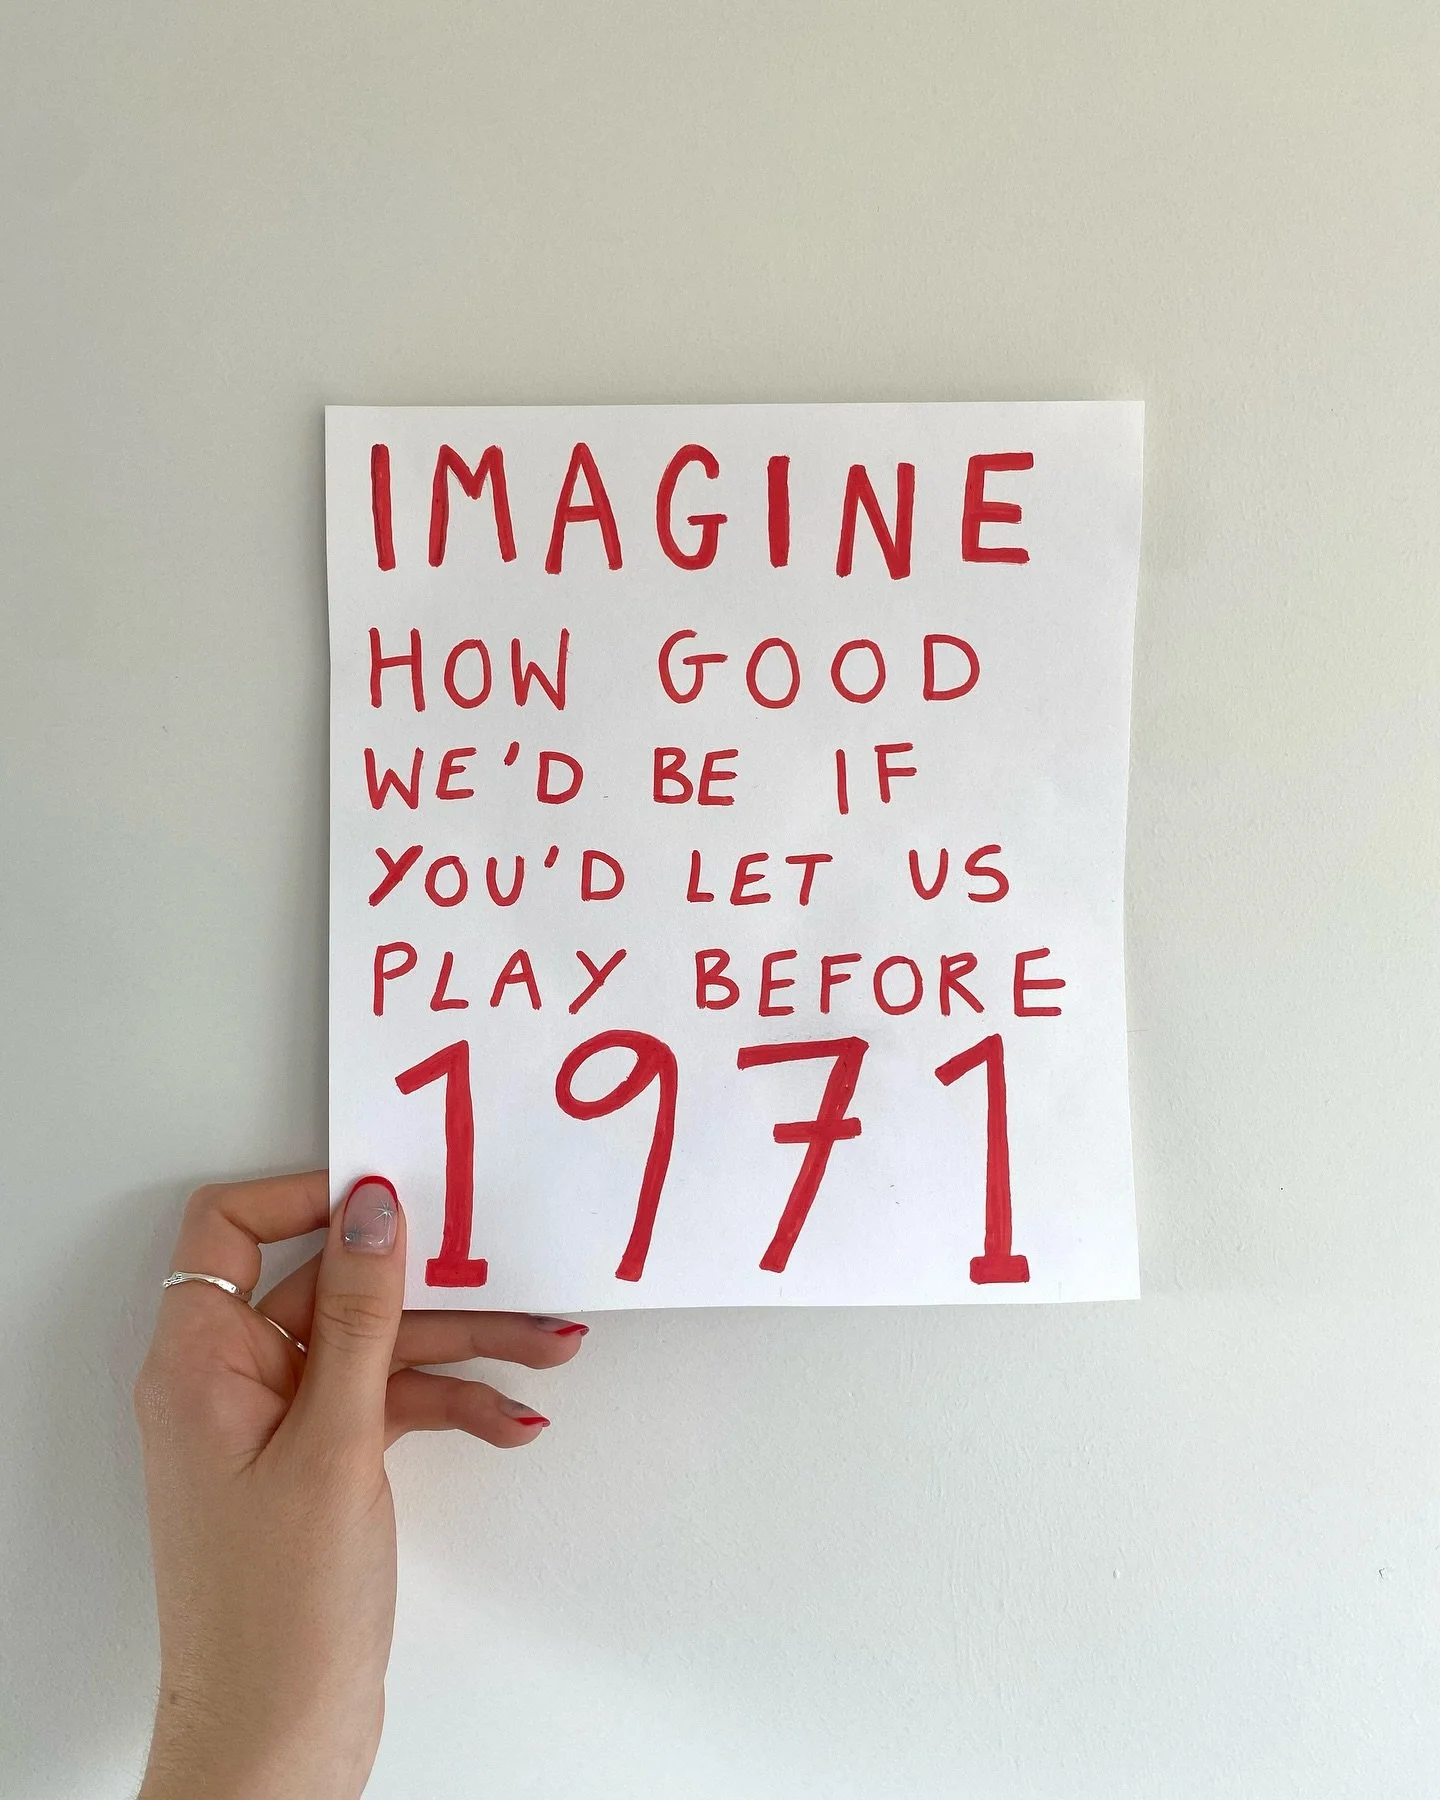 IMAGINE
HOW GOOD
WE'D BE IF
YOU'D LET US
PLAY BEFORE
1971